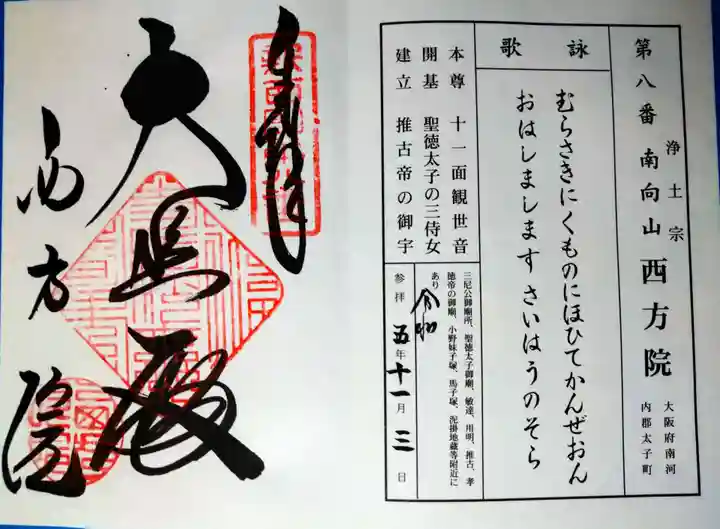 第八番 浄土宗 南向山 西方院 大阪府南河
内郡太子町
詠歌
むらさきにくものにほひてかんぜおん
おはしましますさいはうのそら
本尊 十一面観世音
開基 聖徳太子の三侍女
建立 推古帝の御宇
三尼公御廟所、聖徳太子御廟、敏達、用明、推古、孝
徳帝の御廟、小野妹子塚、馬子塚、泥掛地蔵等附近に
あり
参拝 令和五年十一月三日
奉拝
大悲殿
西方院